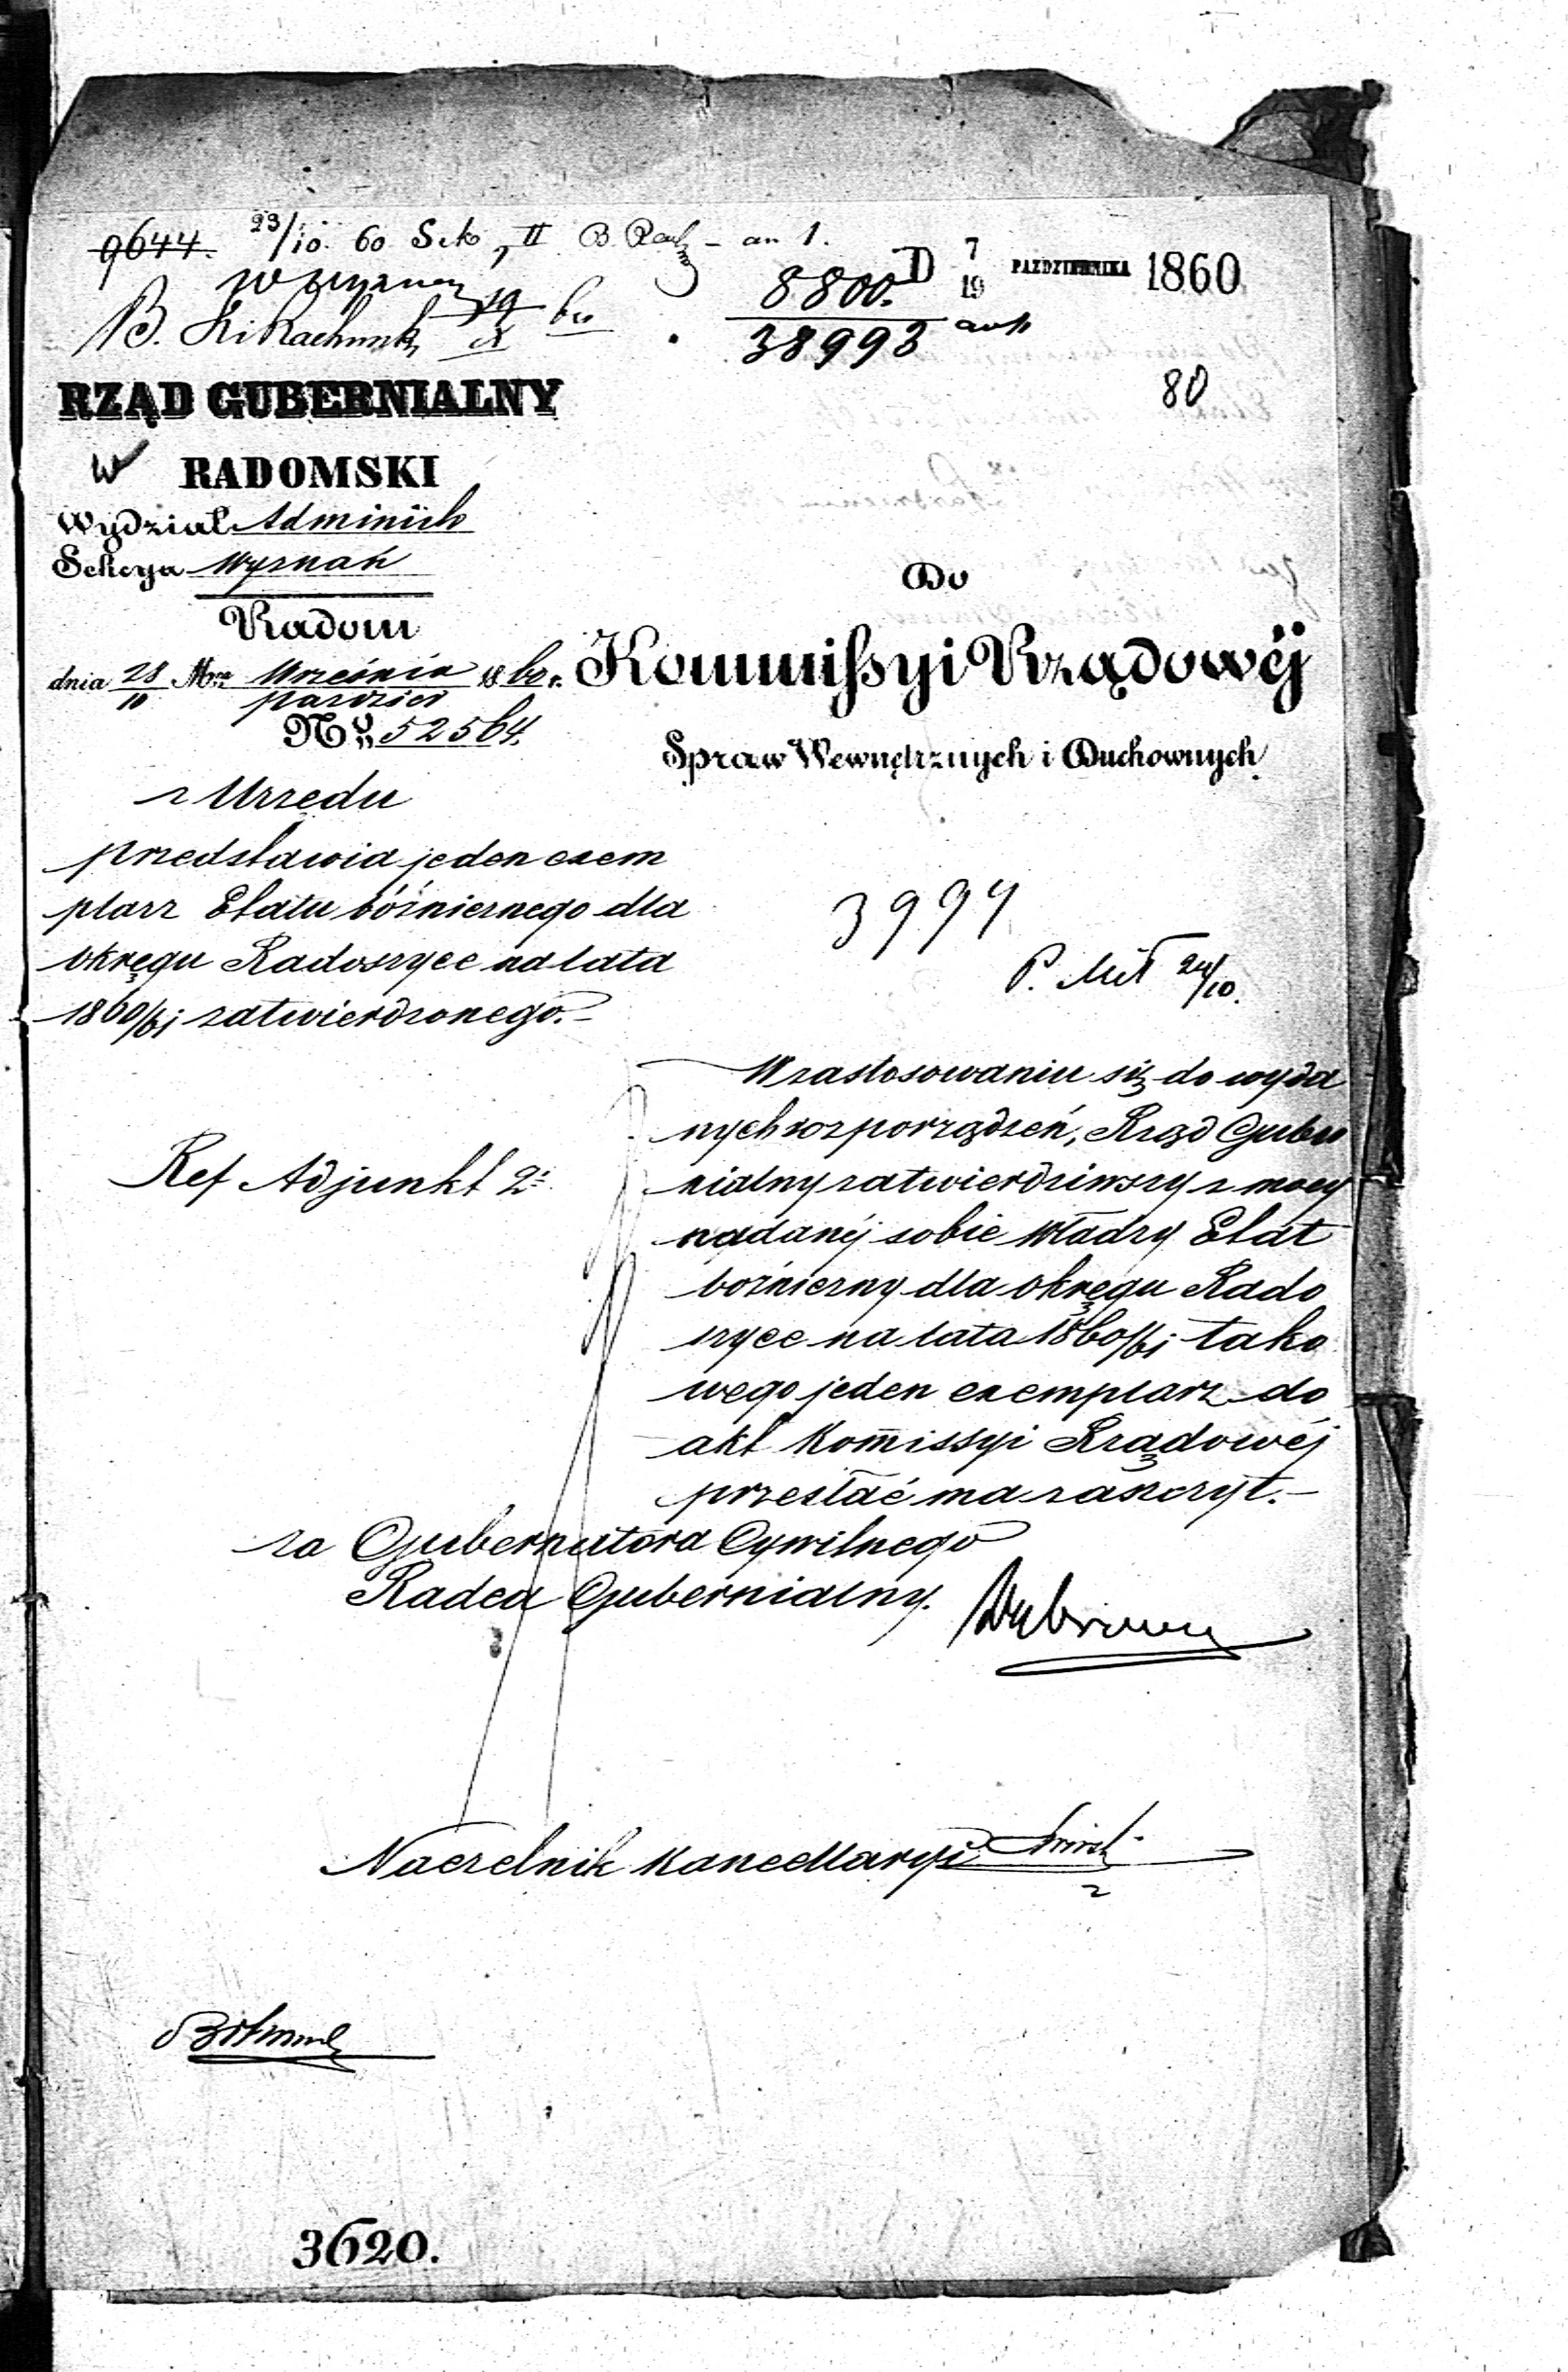 9644. 23/10. 60 Sek II B. Rach – an 1.
D 7/19 PAŹDZIERNIKA 1860
8800.
38993
80
RZĄD GUBERNIALNY
w RADOMSKI
Wydział Administr
Sekcya Wyznań
Radom
dnia 28/10 Mca Września/Paździer 1860 r.
No. 52564.
Do
Kommissyi Rządowéj
Spraw Wewnętrznych i Duchownych
z Urzędu
przedstawia jeden exem
plarz Etatu bóżnicznego dla
okręgu Radoszyce na lata
1860/61 zatwierdzonego.–
3994
24/10.
Ref Adjunkt 2i
W zastosowaniu się do wyda
nych rozporządzeń, Rząd Guber
nialny zatwierdziwszy z mocy
nadanéj sobie władzy Etat
bożniczny dla okręgu Rado
szyce na lata 1860/61 tako
wego jeden exemplarz do
akt Komissyi Rządowéj
przesłać ma zaszczyt.–
za Gubernatora Cywilnego
Radca Gubernialny.
Naczelnik Kancellaryi
3620.